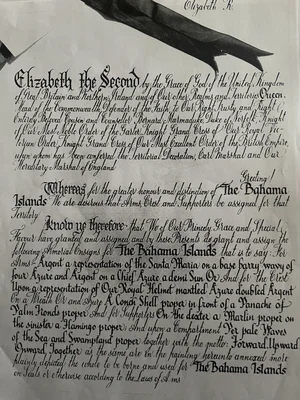 Elizabeth R.
Elizabeth the Second by the Grace of God of the United Kingdom
of Great Britain and Northern Ireland and of Our other Realms and Territories Queen,
Head of the Commonwealth, Defender of the Faith to Our Right Trusty and Right
Entirely Beloved Cousin and Counsellor Bernard Marmaduke Duke of Norfolk Knight
of Our Most Noble Order of the Garter Knight Grand Cross of Our Royal Vic-
torian Order Knight Grand Cross of Our Most Excellent Order of the British Empire,
upon whom has been conferred the Territorial Decoration, Earl Marshal and Our
Hereditary Marshal of England
Greeting!
Whereas for the greater honour and distinction of The Bahama
Islands We are desirous that Arms Crest and Supporters be assigned for that
Territory
Know ye therefore that We of Our Princely Grace and Special
Favour have granted and assigned and by these Presents do grant and assign the
following Armorial Ensigns for The Bahama Islands that is to say: For
Arms Argent a representation of the Santa Maria on a base barry wavy of
four Azure and Argent on a Chief Azure a demi Sun Or And for the Crest
Upon a representation of Our Royal Helmet mantled Azure doubled Argent
On a Wreath Or and Azure A Conch Shell proper in front of a Panache of
Palm Fronds proper And for Supporters On the dexter a Marlin proper and
on the sinister a Flamingo proper And upon a Compartment Per pale Waves
of the Sea and Swampland proper together with the motto: Forward, Upward
Onward, Together as the same are in the painting hereunto annexed more
plainly depicted the whole to be borne and used for The Bahama Islands
on Seals or otherwise according to the Laws of Arms